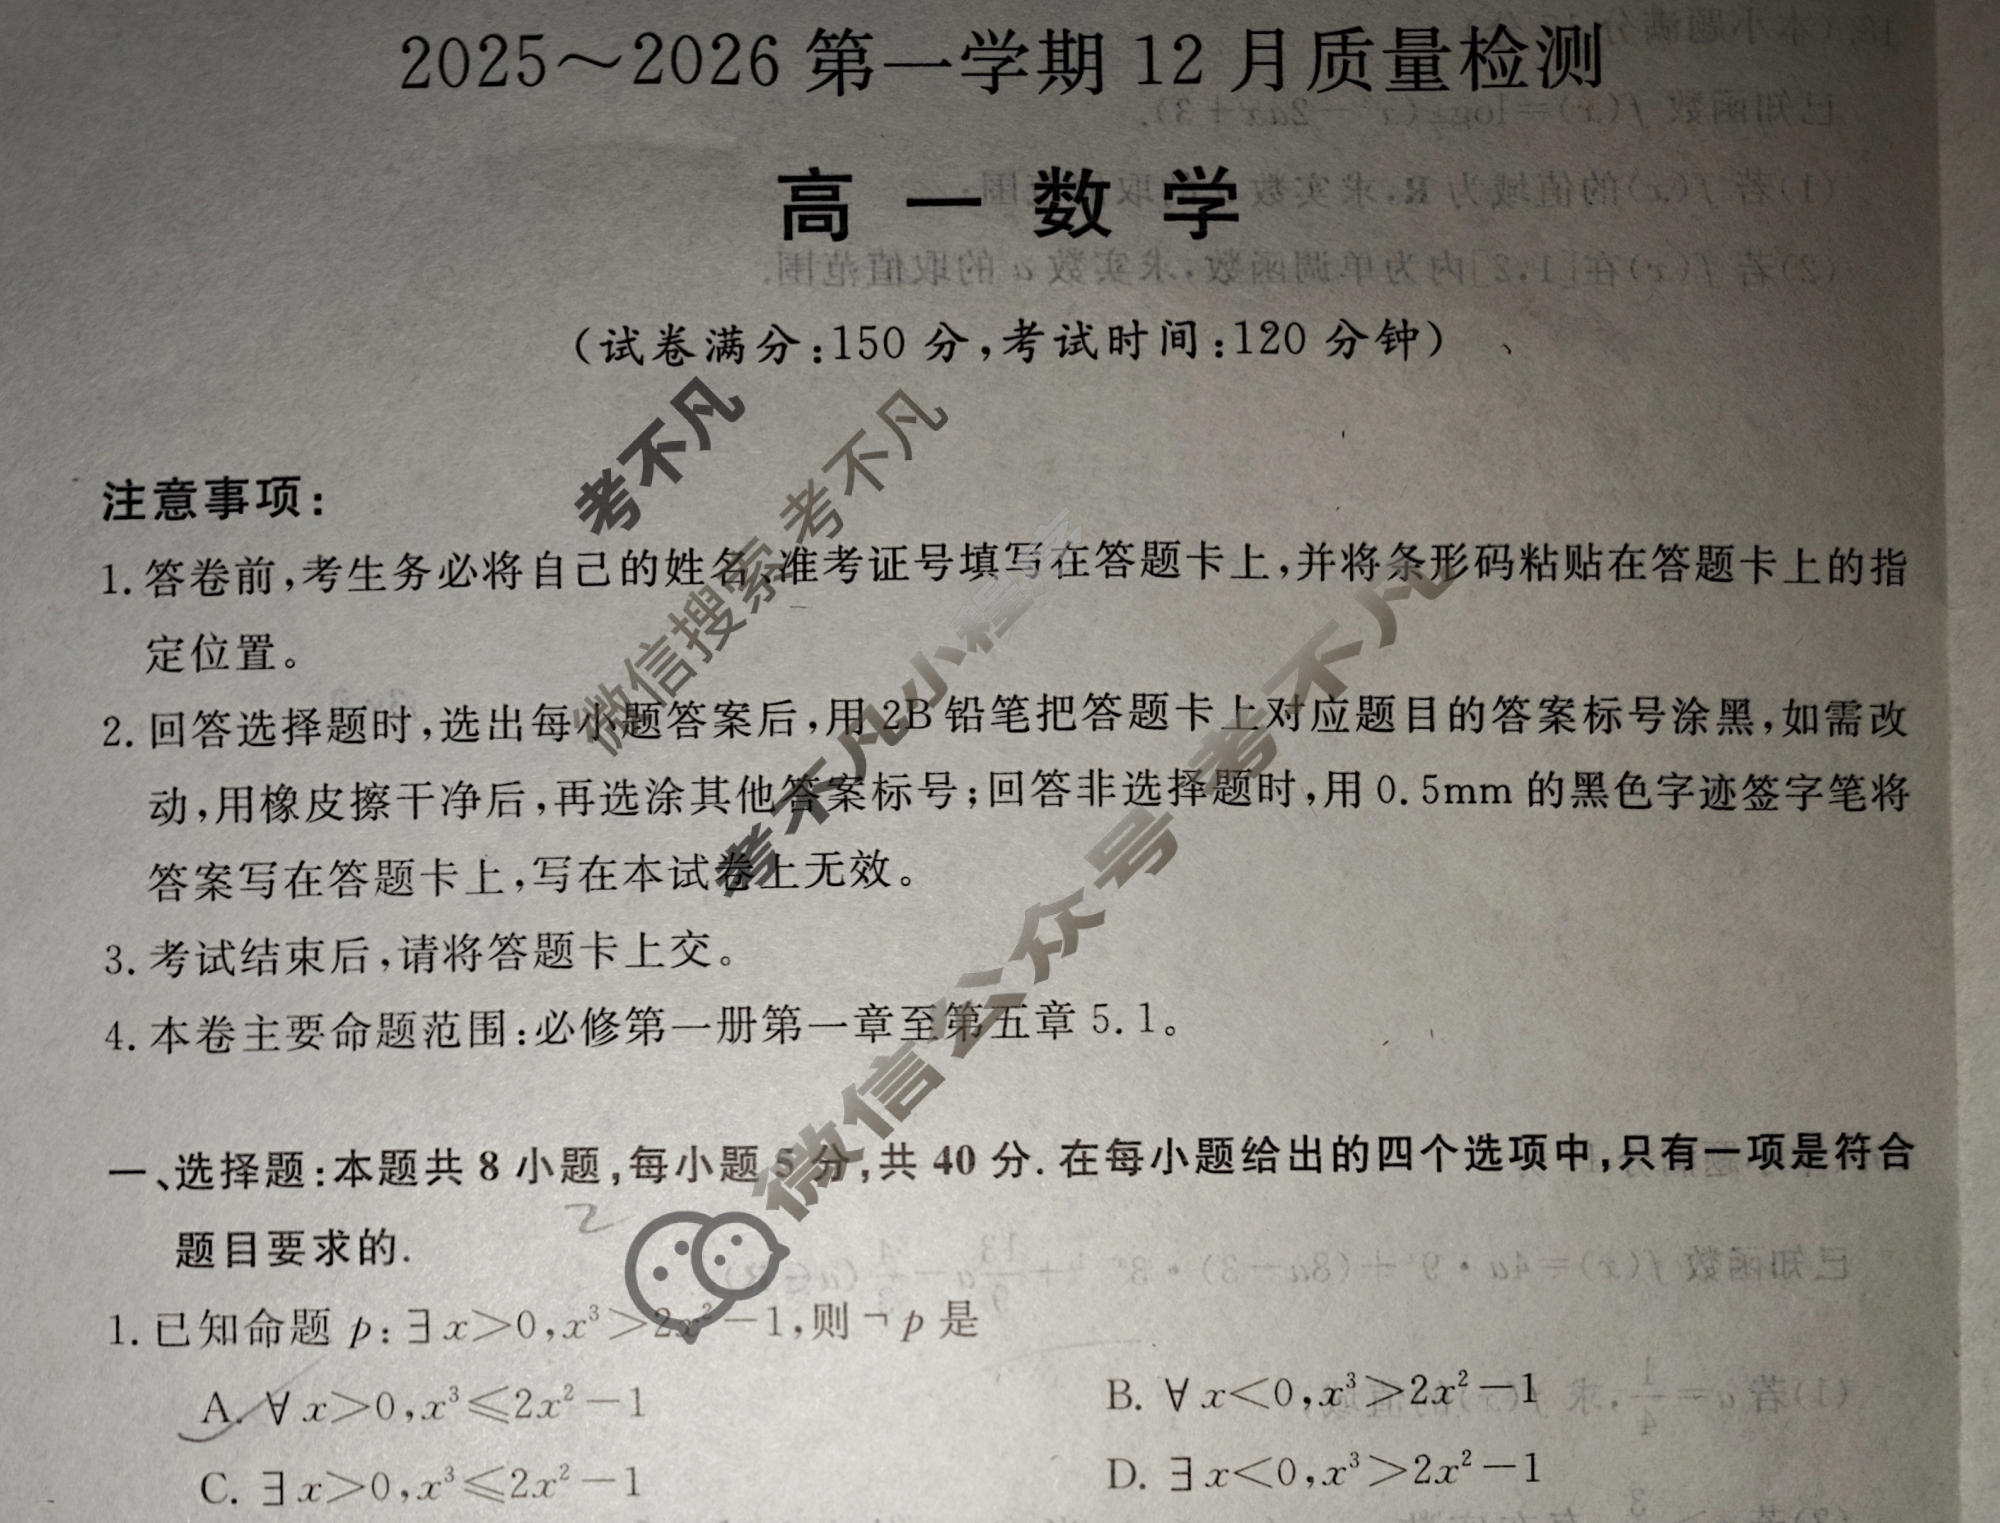 2025～2026 第一学期 12 月质量检测
高 一 数 学
（试卷满分：150 分，考试时间：120 分钟）
注意事项：
1. 答卷前，考生务必将自己的姓名、准考证号填写在答题卡上，并将条形码粘贴在答题卡上的指
定位置。
2. 回答选择题时，选出每小题答案后，用 2B 铅笔把答题卡上对应题目的答案标号涂黑，如需改
动，用橡皮擦干净后，再选涂其他答案标号；回答非选择题时，用 0.5mm 的黑色字迹签字笔将
答案写在答题卡上，写在本试卷上无效。
3. 考试结束后，请将答题卡上交。
4. 本卷主要命题范围：必修第一册第一章至第五章 5.1。
一、选择题：本题共 8 小题，每小题 5 分，共 40 分. 在每小题给出的四个选项中，只有一项是符合
题目要求的.
1. 已知命题 p：∃x>0，x³>2x²－1，则￢p 是
A. ∀x>0，x³≤2x²－1
B. ∀x<0，x³>2x²－1
C. ∃x>0，x³≤2x²－1
D. ∃x<0，x³>2x²－1
考不凡
微信搜索 考不凡
考不凡小程序
微信公众号 考不凡